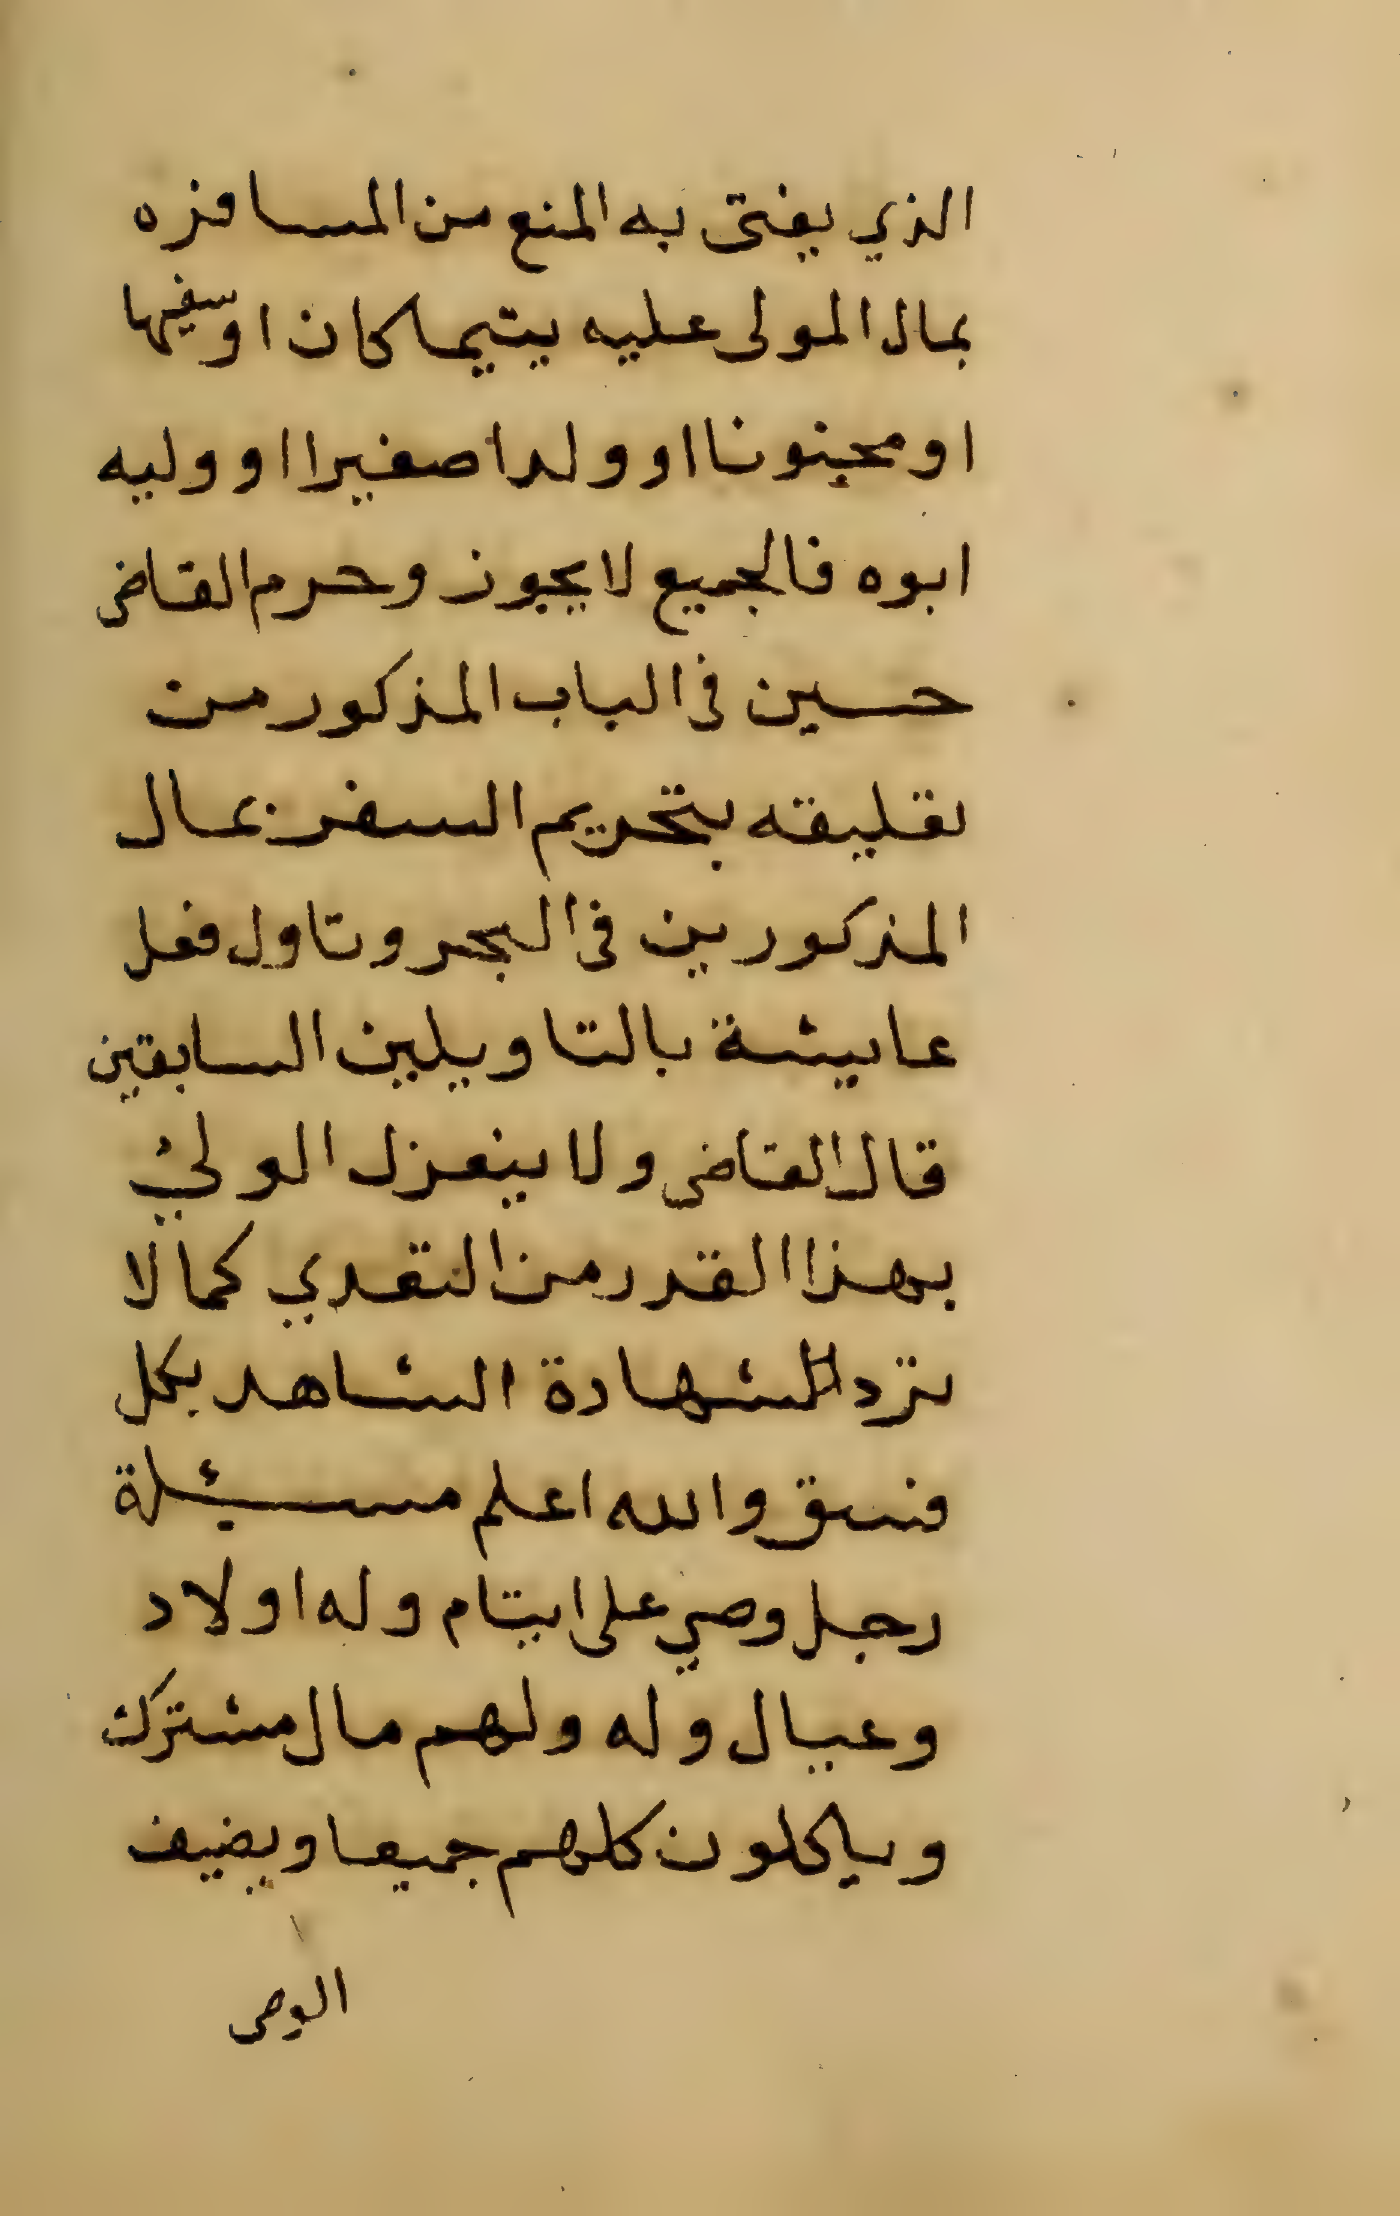 الذي يفتى به المنع من المسافره
بمال المولى عليه يتيما كان او سفيها
او مجنونا او ولدا صغيرا او وليه
ابوه فالجميع لا يجوز وحرم القاضى
حسين فى الباب المذكور من
تعليقه بتحريم السفر بمال
المذكورين فى البحر وتاول فعل
عايشة بالتاويلين السابقين
قال القاضى ولا ينعزل الولي
بهذا القدر من التعدي كما لا
ترد الشهادة الشاهد بكل
فسق والله اعلم مسئلة
رجل وصي على ايتام وله اولاد
وعيال وله ولهم مال مشترك
وياكلون كلهم جميعا ويضيف
الوصى